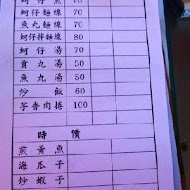 蚵仔煎 70
蚵仔麵線 70
魚丸麵線 70
蚵仔拌麵線 80
蚵仔湯 70
貢丸湯 50
魚丸湯 50
炒飯 60
芋香肉捲 100
時價
煎黃魚
海瓜子
炒蝦子